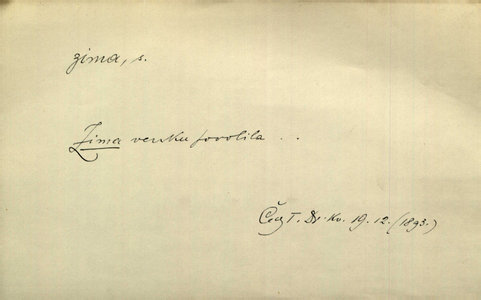 zima, s.
Zima venku povolila . .
Čas T. Dr. Kv. 19. 12. (1893.)